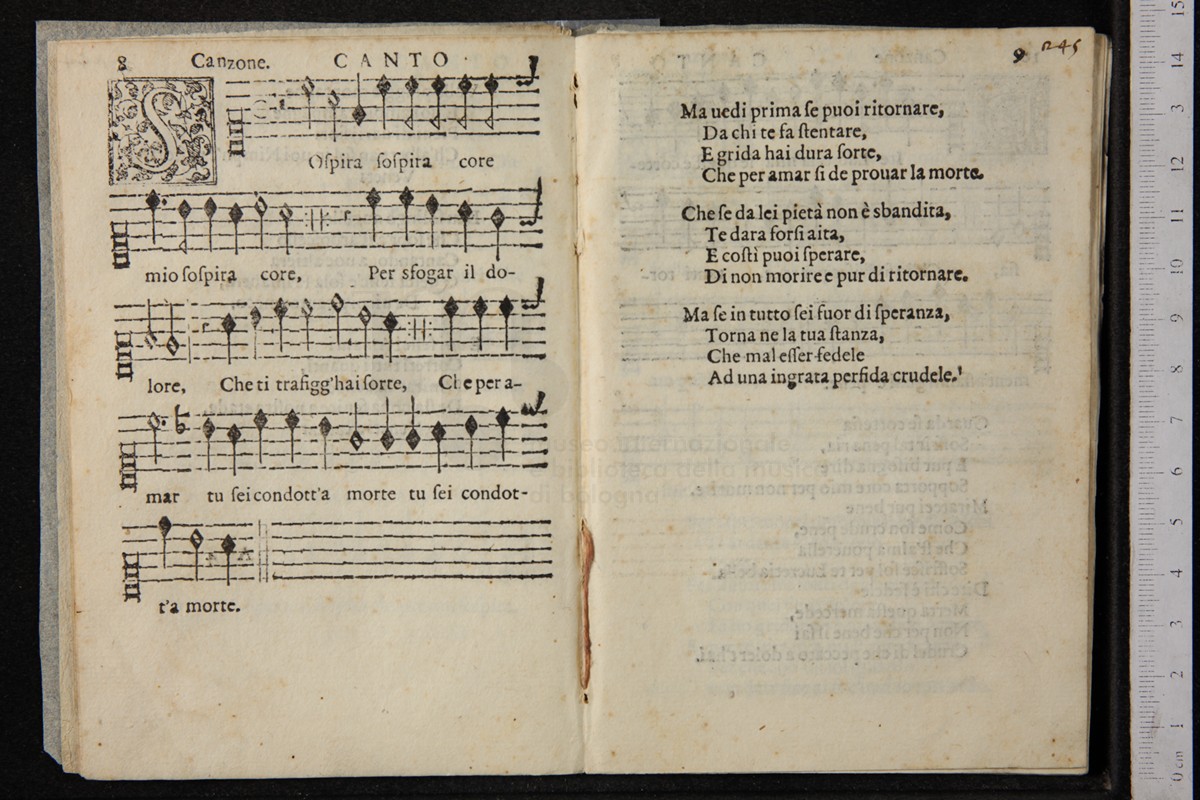 8 Canzone. CANTO
SOspira sospira core
mio sospira core, Per sfogar il do-
lore, Che ti trafigg'hai sorte, Che per a-
mar tu sei condott'a morte tu sei condot-
t'a morte.
9 245
Ma uedi prima se puoi ritornare,
Da chi te fa stentare,
E grida hai dura sorte,
Che per amar si de prouar la morte.
Che se da lei pietà non è sbandita,
Te dara forsi aita,
E costi puoi sperare,
Di non morire e pur di ritornare.
Ma se in tutto sei fuor di speranza,
Torna ne la tua stanza,
Che mal esser fedele
Ad una ingrata perfida crudele.
museo internazionale
e biblioteca della musica
di bologna
0 cm 1 2 3 4 5 6 7 8 9 10 11 12 13 14 15